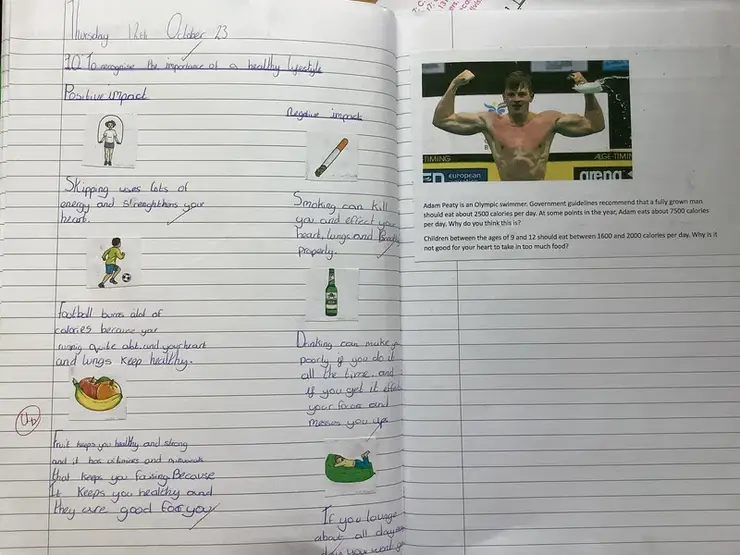 Thursday 12th October 23
LO To recognise the importance of a healthy lifestyle
Positive impact
Skipping uses lots of
energy and strenghthens your
heart.
Football burns alot of
calories because your
quite alot and your heart
and lungs keep healthy.
Fruit keeps you healthy and strong
and it has and
that keeps you Because
It keeps you healthy and
they are good for you
Negative impact
Smoking can kill
you and effect your
heart, lungs and
properly.
Drinking can make
poorly if you do it
all the time, and
if you get it
your and
messes you up.
If you lounge
about all day
you
TIMING
european
arena
ALGE-TIMIN
Adam Peaty is an Olympic swimmer. Government guidelines recommend that a fully grown man
should eat about 2500 calories per day. At some points in the year, Adam eats about 7500 calories
per day. Why do you think this is?
Children between the ages of 9 and 12 should eat between 1600 and 2000 calories per day. Why is it
not good for your heart to take in too much food?